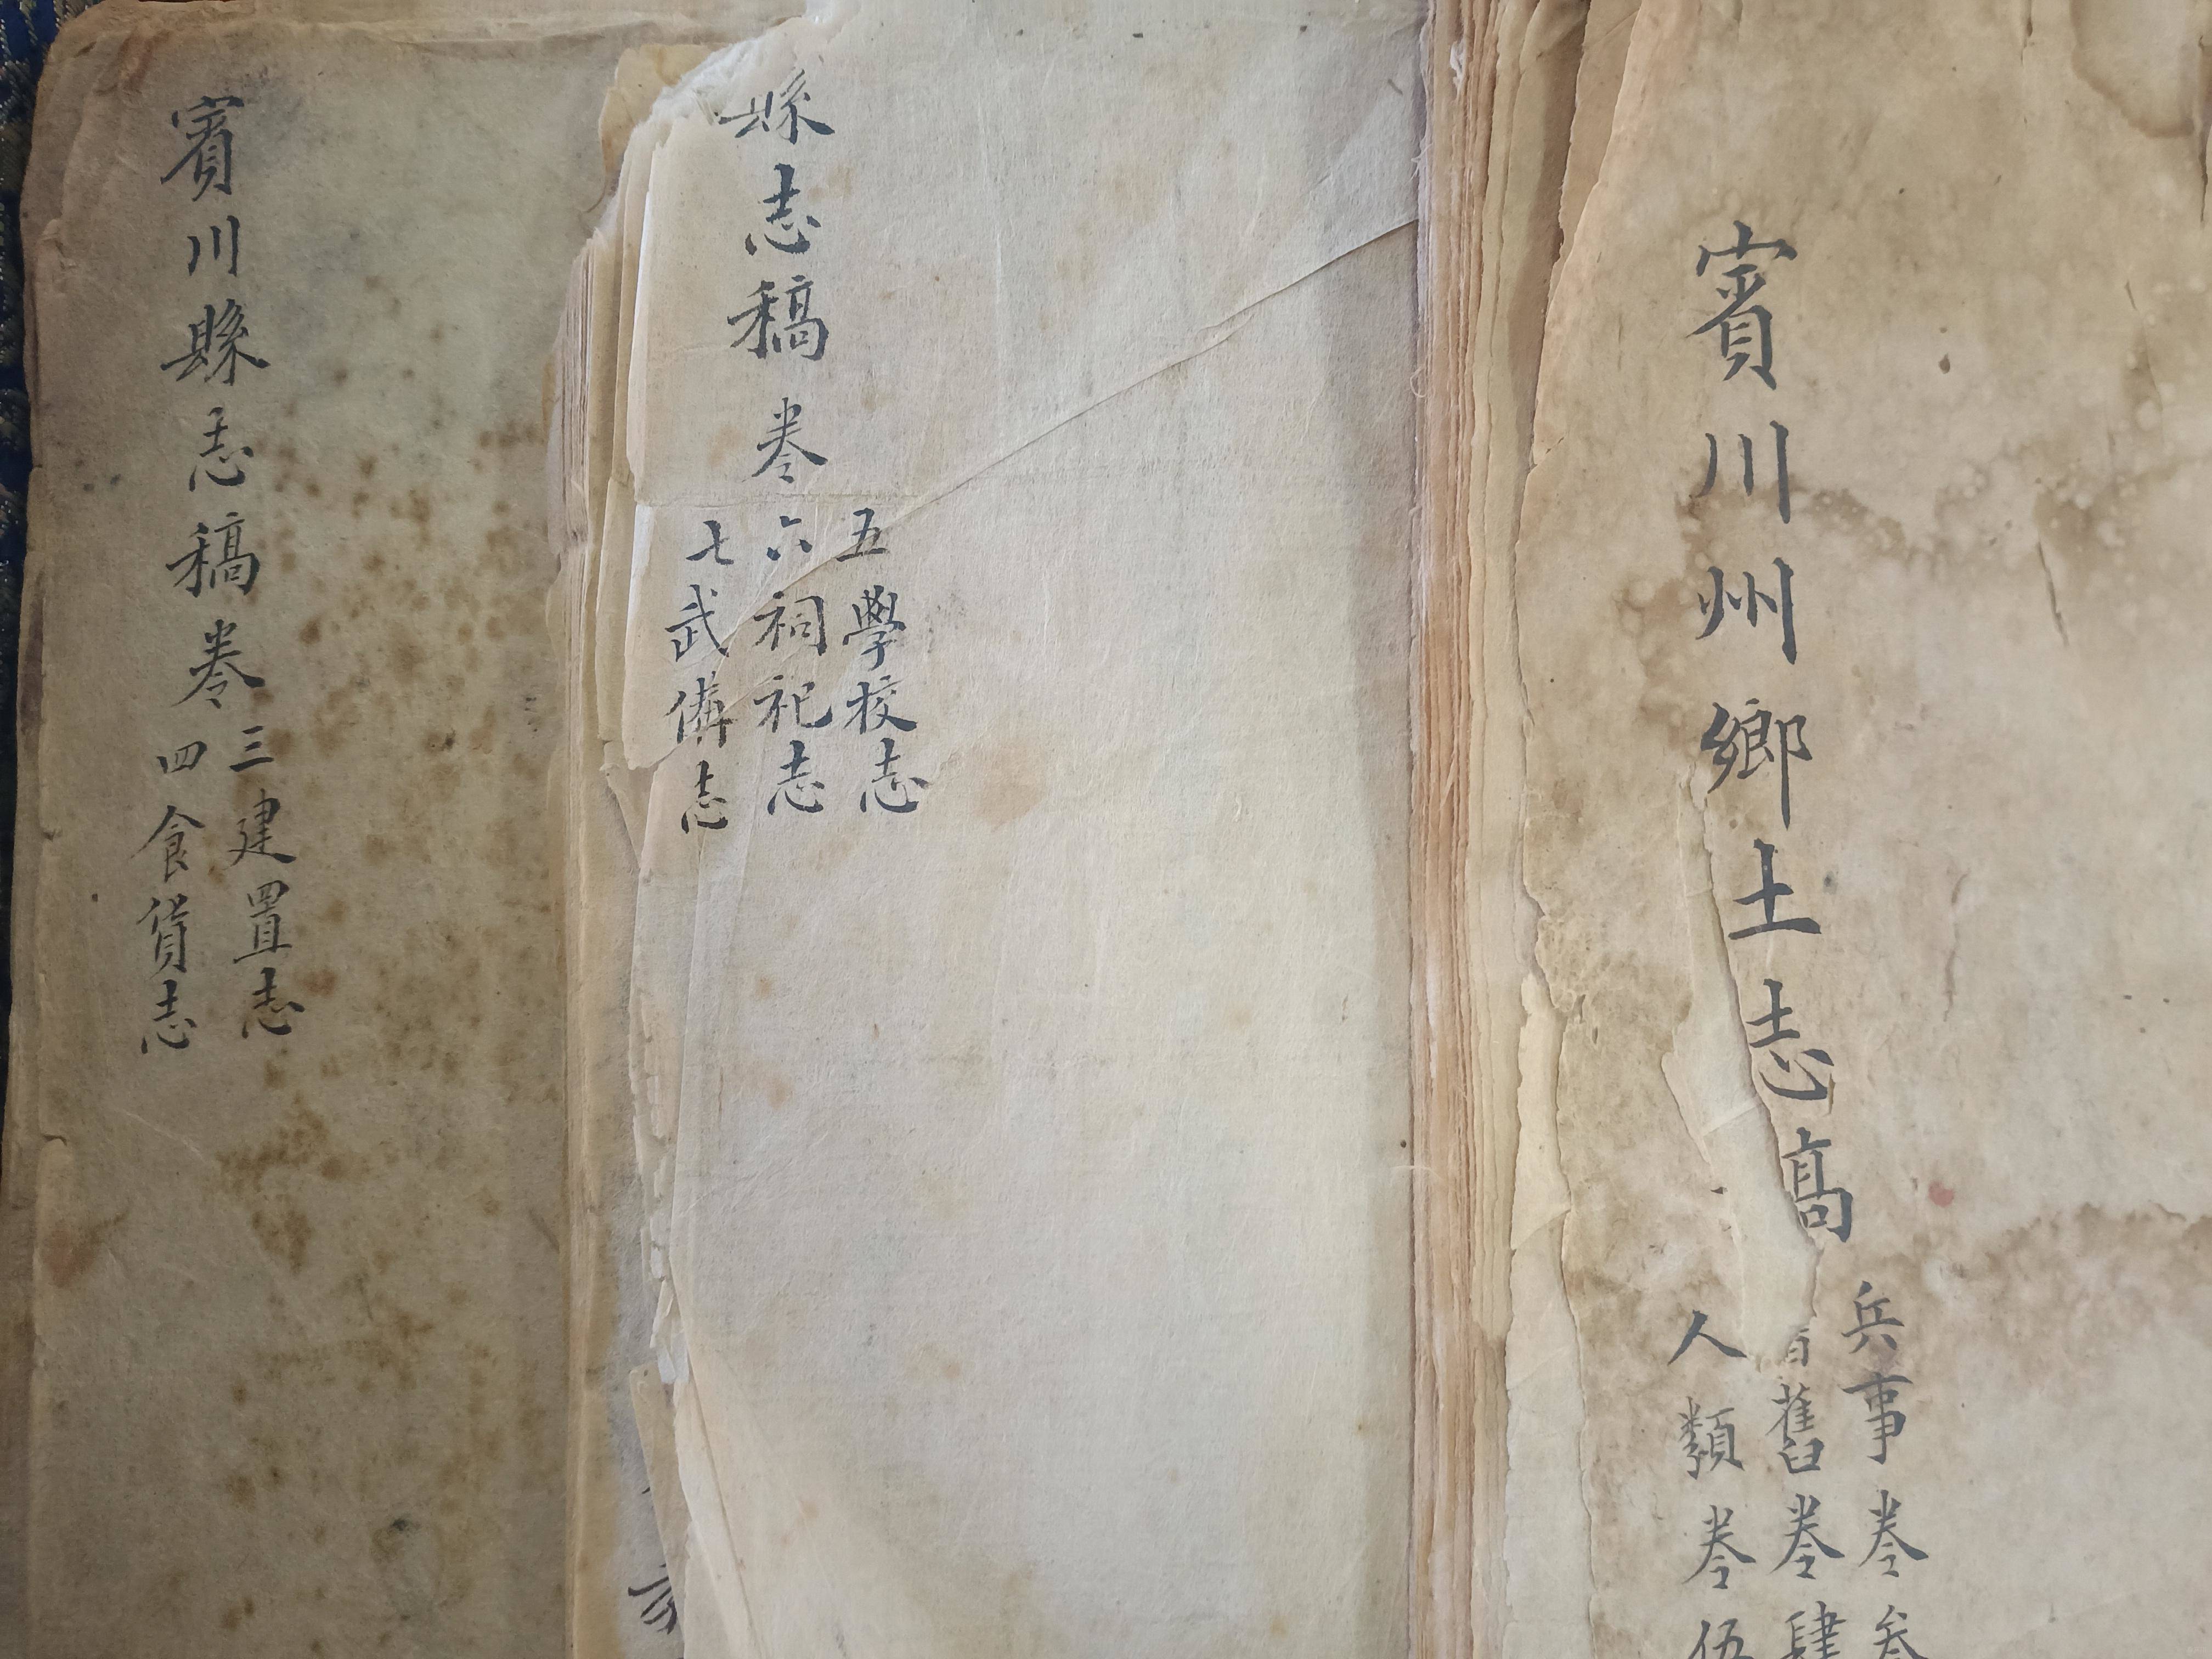 賓川縣志稿卷
三建置志
四食貨志
縣志稿卷
五學校志
六祠祀志
七武備志
賓川州鄉土志稿
兵事卷叁
耆舊卷肆
人類卷伍